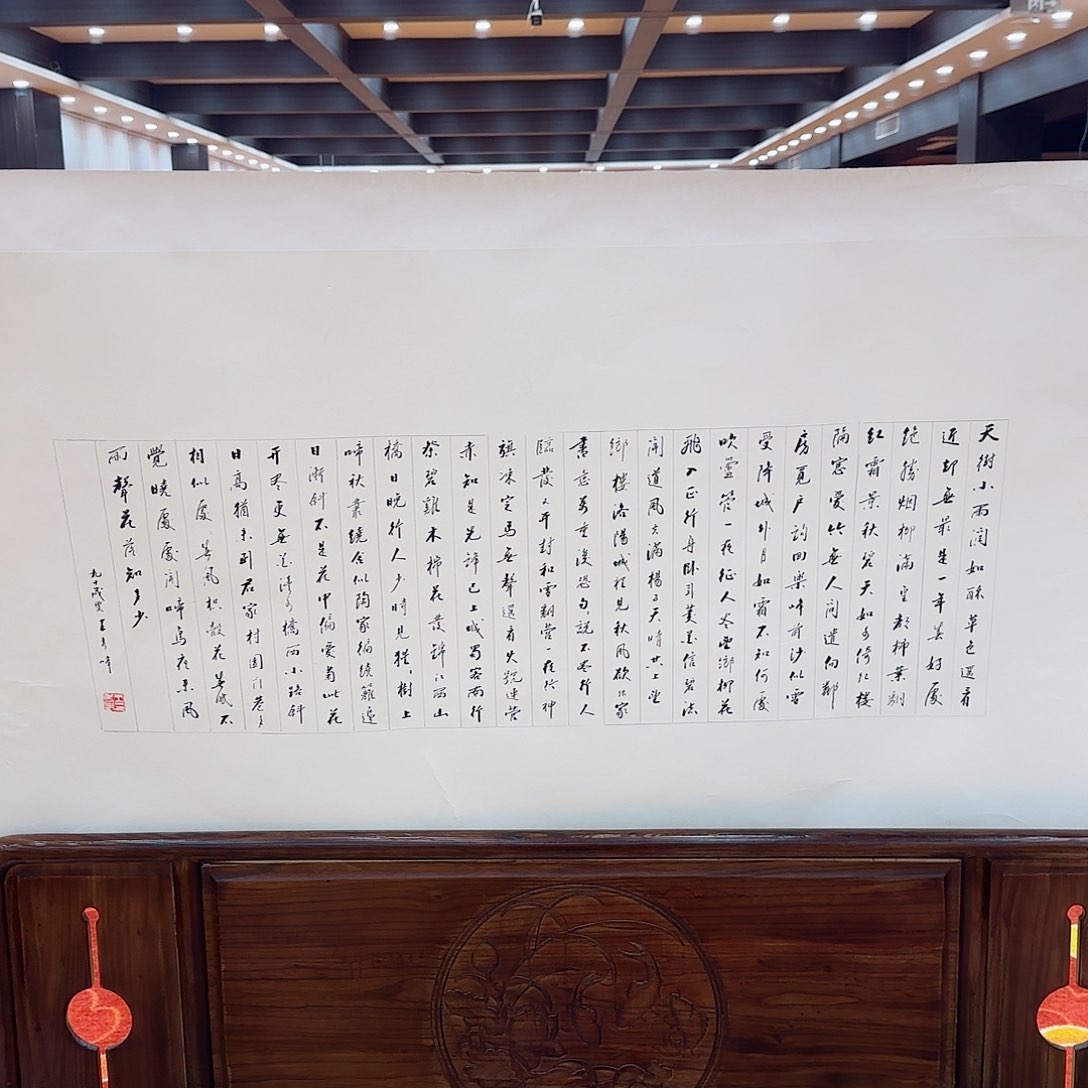 天街小雨潤如酥草色遥看
近却無最是一年春好處
絶勝烟柳滿皇都柿葉翻
紅霜景秋碧天如水倚紅樓
隔窗愛竹無人問遣向鄰
房覓户鈎回樂峰前沙似雪
受降城外月如霜不知何處
吹蘆管一夜征人盡望鄉柳花
飛入正行舟卧引菱花信碧流
聞道風光滿楊子天晴共上望
鄉樓洛陽城裏見秋風欲作家
書意萬重復恐匆匆説不盡行人
臨發又開封和雪翻營一夜行神
旗凍定馬無聲遥看火號連營
赤知是先鋒已上城蜀客南行
祭碧雞木棉花發錦江西山
橋日晚行人少時見猩猩樹上
啼秋叢繞舍似陶家徧繞籬邊
日漸斜不是花中偏愛菊此花
開盡更無花渡水橋西小路斜
日高猶未到君家村園門巷多
相似處處春風枳殼花春眠不
覺曉處處聞啼鳥夜來風
雨聲花落知多少
九十歲叟